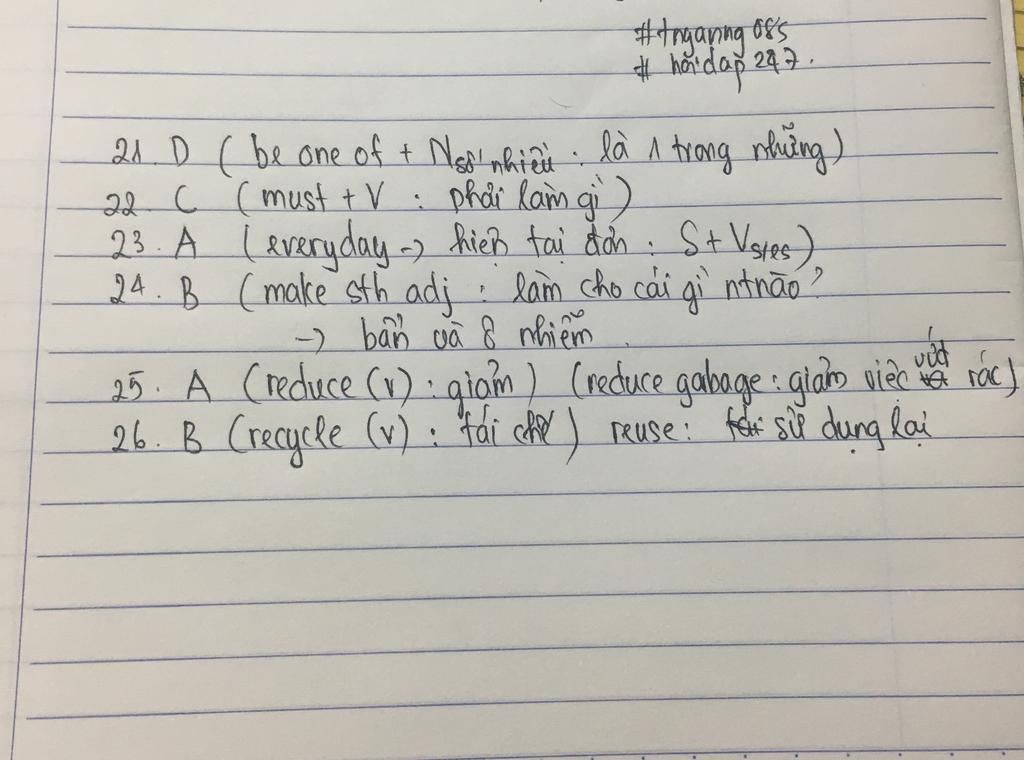 #tnganng085
# hoidap247.
21. D ( be one of + N số nhiều : là 1 trong những)
22. C (must + V : phải làm gì)
23. A (everyday -> hiện tại đơn : S + Vs/es)
24. B (make sth adj : làm cho cái gì ntnào?
-> bẩn và ô nhiễm.
25. A (reduce (v) : giảm) (reduce gabage : giảm việc vứt rác)
26. B (recycle (v) : tái chế) reuse : sử dụng lại